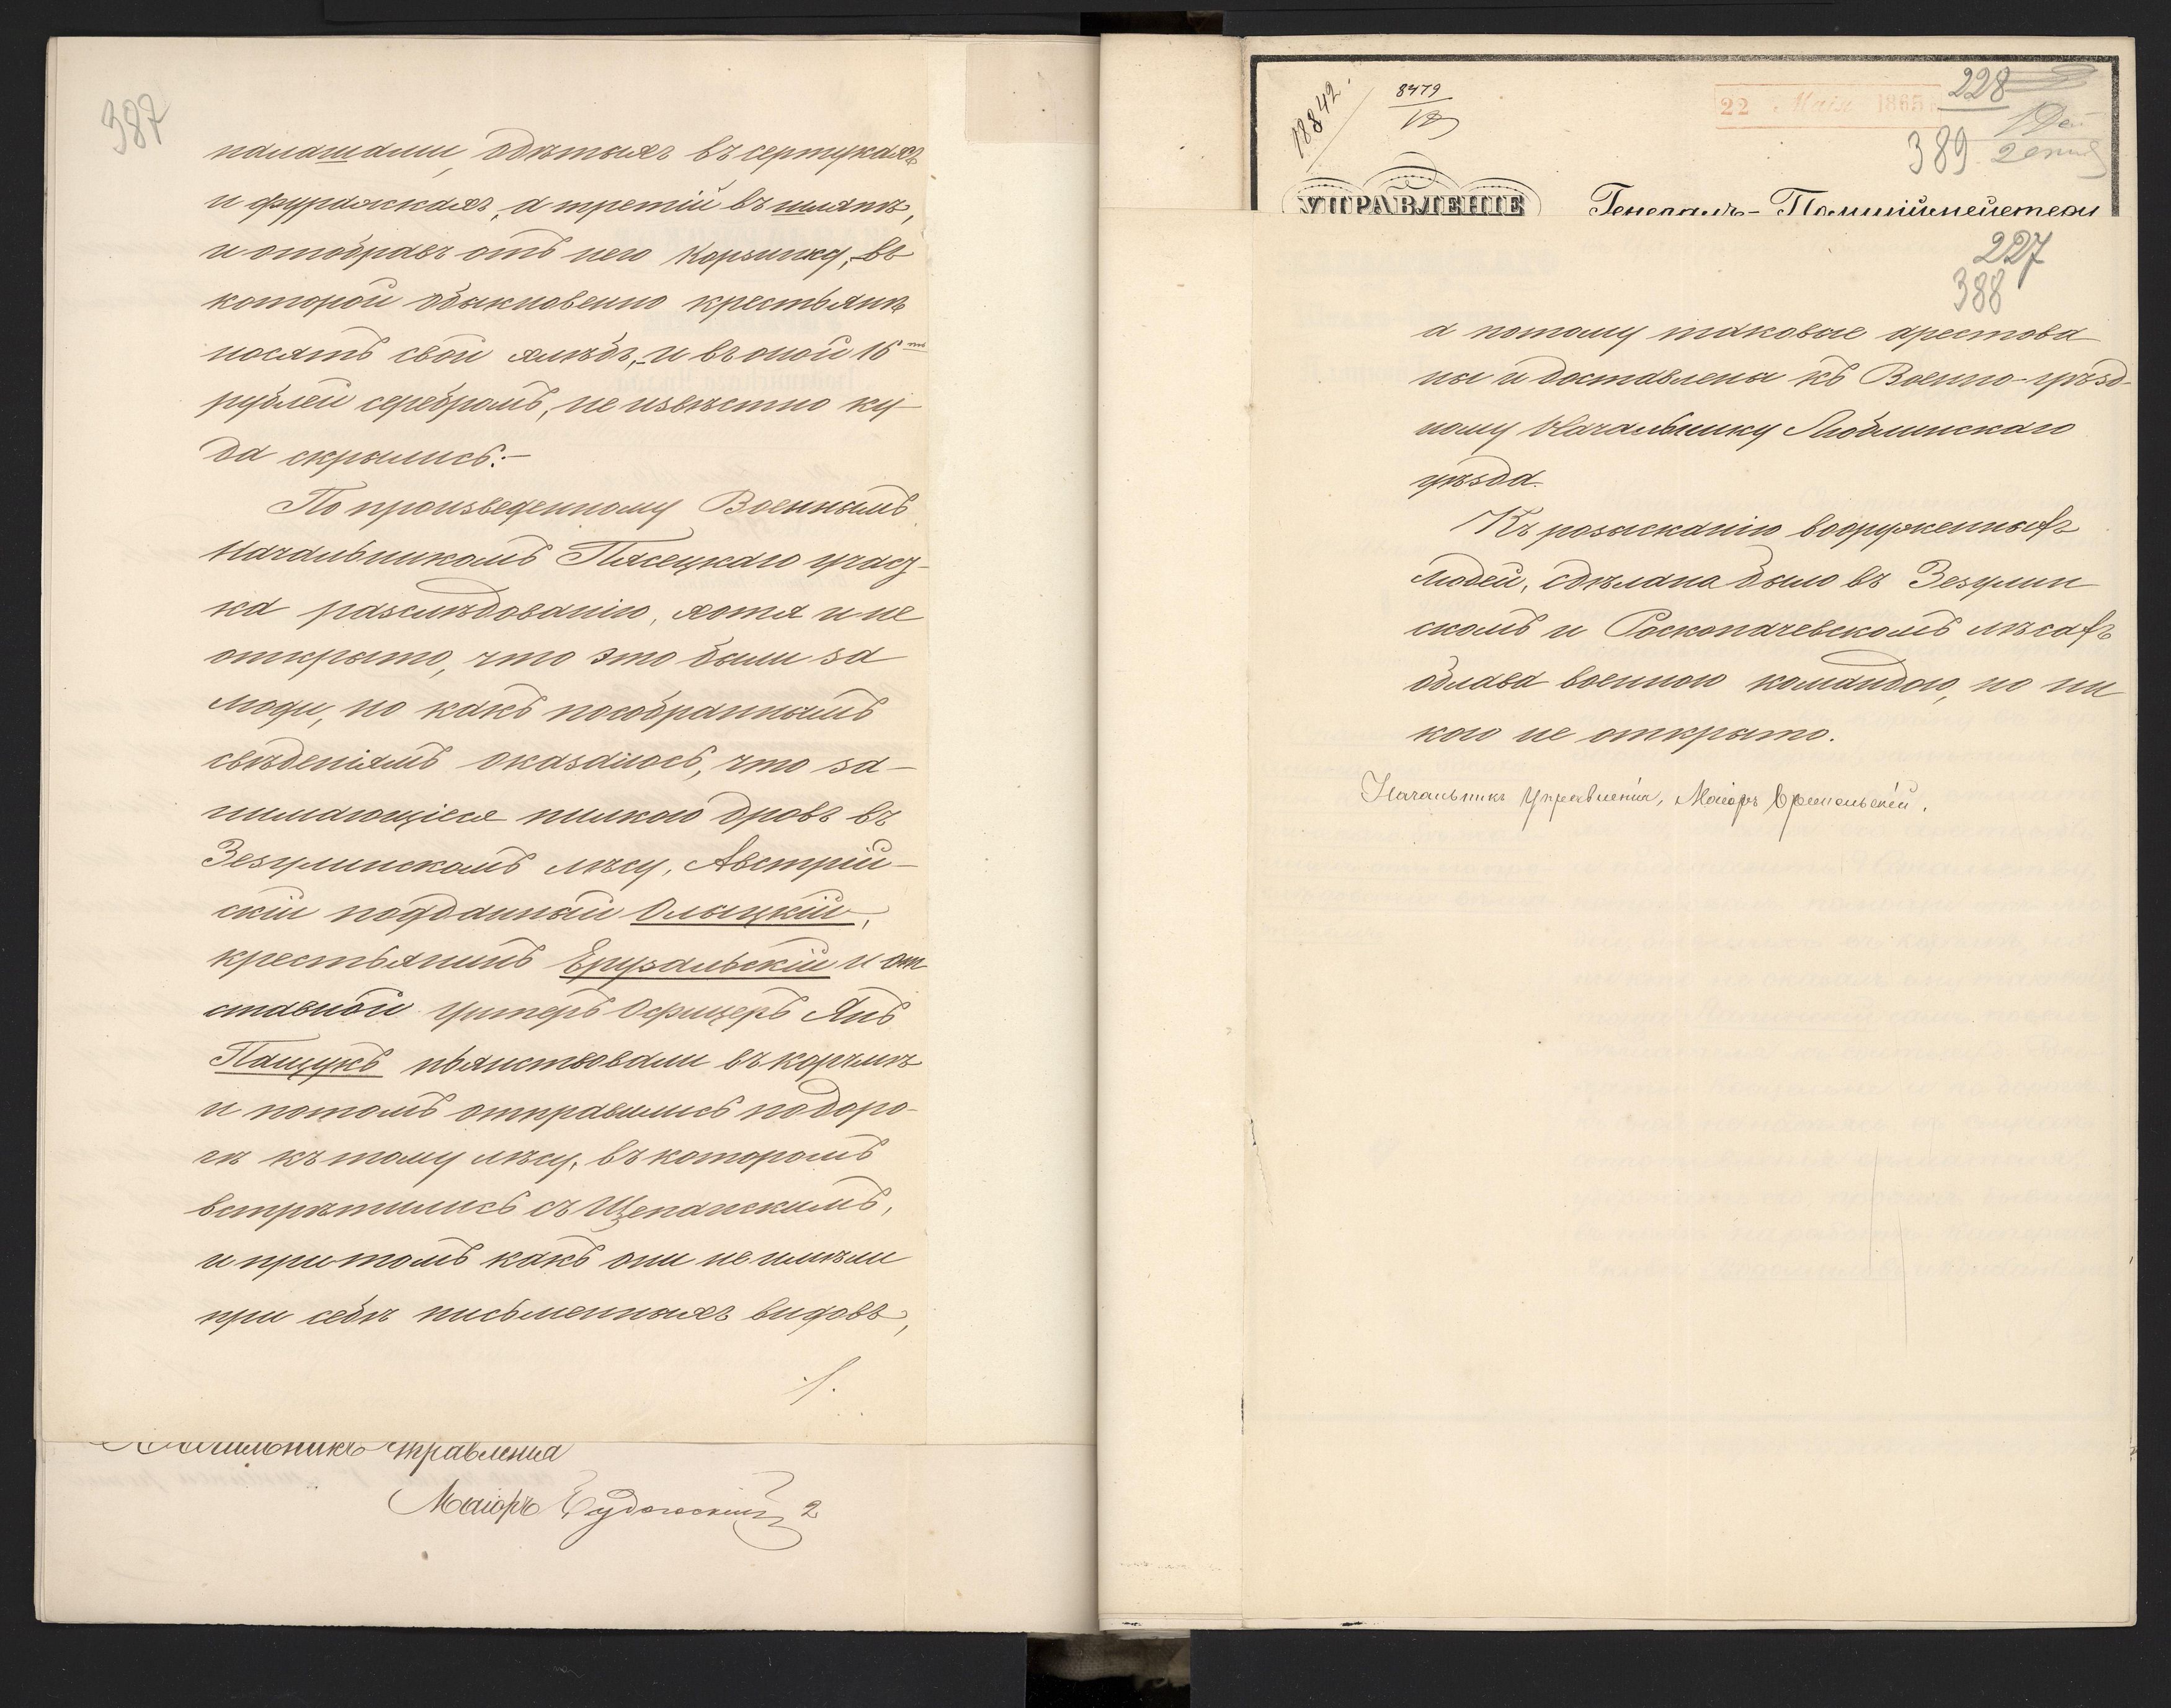 387
палашами, одѣтыхъ въ сертукахъ
и фуражкахъ, а третій въ шляпѣ,
и отобравъ отъ него корзинку, въ
которой обыкновенно крестьяне
носятъ свой хлѣбъ, и въ оной 16ть
рублей серебромъ, не извѣстно ку-
да скрылись:-
По произведенному Военнымъ
Начальникомъ Пясецкаго участ-
ка разслѣдованію, хотя и не
открыто, что это были за
люди, но какъ пособраннымъ
свѣденіямъ оказалось, что за-
нимающіеся пилкою дровъ въ
Зезулинскомъ лѣсу, Австрій-
скій подданный Ольшцкій,
крестьянинъ Ерузальскій и от
ставной Унтеръ Офицеръ Янъ
Пащукъ пьянствовали въ корчмѣ
и потомъ отправились подоро-
гѣ къ тому лѣсу, въ которомъ
встрѣтились съ Щепанскимъ,
и притомъ какъ они не имѣли
при себѣ письменныхъ видовъ,
./.
Начальникъ Управленія
Маіоръ
2
18842.
8479
22 Мая 1865
228
389
УПРАВЛЕНІЕ
Генералъ-Полиціймейстера
227
388
а потому таковые арестова
ны и доставлены къ Военно-уѣзд-
ному Начальнику Люблинскаго
уѣзда.
Къ розысканію вооруженныхъ
людей, сдѣлана было въ Зезулин
скомъ и Роскопачевскомъ лѣсахъ
облава военною командою, но ни
кого не открыто.
Начальникъ Управленія, Маіоръ